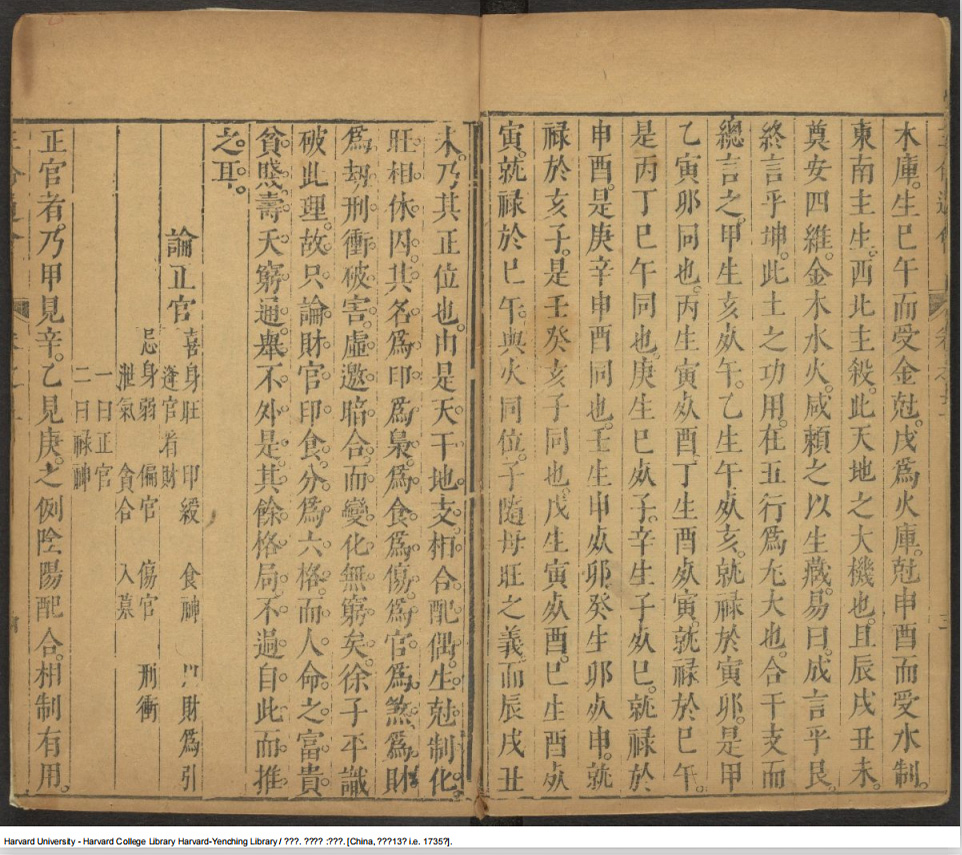 木庫。生巳午而受金尅。戌爲火庫。尅申酉而受水制。
東南主生。西北主殺。此天地之大機也。且辰戌丑未。
奠安四維。金木水火。咸賴之以生藏。易曰。成言乎艮。
終言乎坤。此土之功用。在五行爲尢大也。合干支而
總言之。甲生亥𣦸午。乙生午𣦸亥。就祿於寅卯。是甲
乙寅卯同也。丙生寅𣦸酉丁生酉𣦸寅。就祿於巳午。
是丙丁巳午同也。庚生巳𣦸子。辛生子𣦸巳。就祿於
申酉。是庚辛申酉同也。壬生申𣦸卯癸生卯𣦸申。就
祿於亥子。是壬癸亥子同也。戊生寅𣦸酉。巳生酉𣦸
寅。就祿於巳午。與火同位。子隨母旺之義。而辰戌丑
未。乃其正位也。由是天干地支。相合配偶。生尅制化。
旺相休囚。其名爲印。爲梟。爲食。爲傷。爲官。爲煞。爲財。
爲刼。刑衝破害。虛邀暗合。而變化無窮矣。徐子平識
破此理。故只論財官印食。分爲六格。而人命之富貴
貧賤壽夭窮通。舉不外是。其餘格局。不過自此而推
之耳。
論正官
喜身旺 印綬 食神 以財爲引
逢官看財
忌身弱 偏官 傷官 刑衝
泄氣 貪合 入墓
一曰正官
二曰祿神
正官者。乃甲見辛。乙見庚。之例。陰陽配合。相制有用。
Harvard University - Harvard College Library Harvard-Yenching Library / ???. ???? :???. [China, ???13? i.e. 1735?].